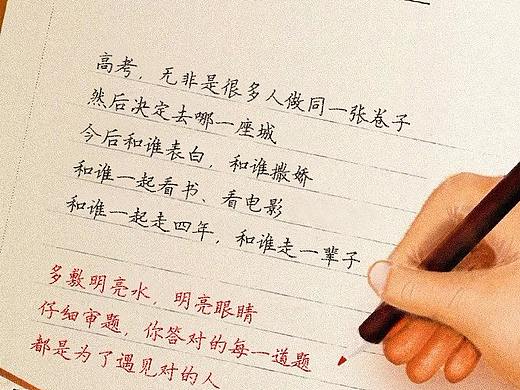 高考，无非是很多人做同一张卷子
然后决定去哪一座城
今后和谁表白，和谁撒娇
和谁一起看书、看电影
和谁一起走四年，和谁走一辈子
多敷明亮水，明亮眼睛
仔细审题，你答对的每一道题
都是为了遇见对的人